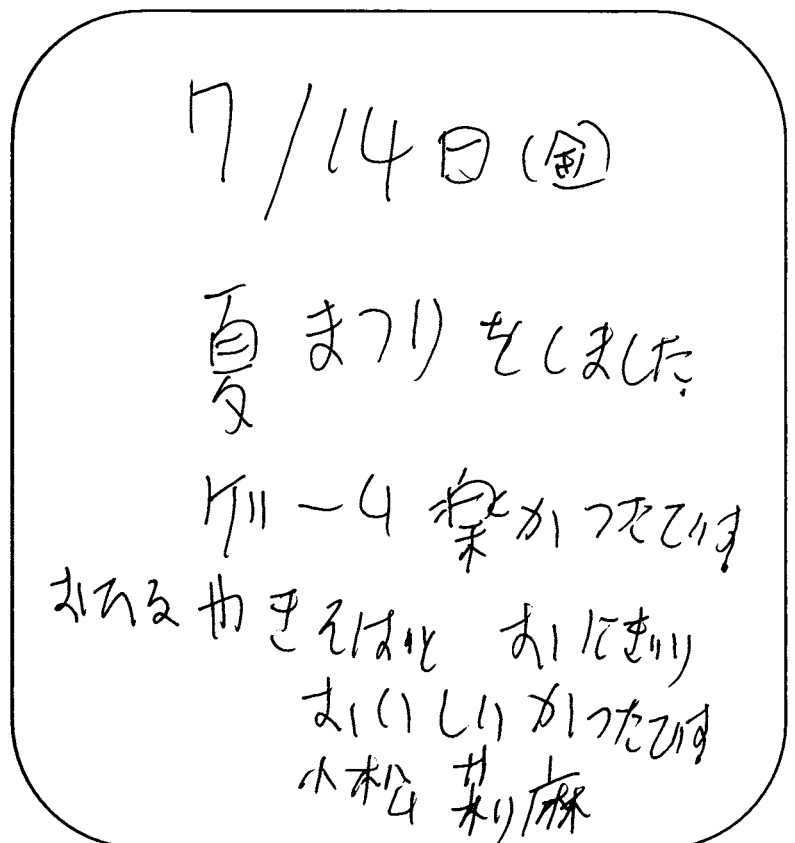 7/14日(金)
夏まつりをしました
ゲーム楽かったです
おひるやきそばと おにぎり
おいしいかったです
小松 莉麻